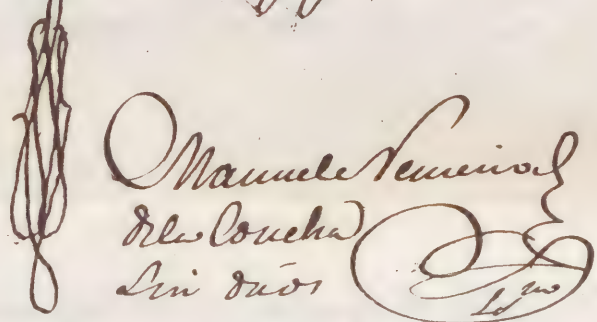 Manuel Nemecio
de la Concha
sin dros